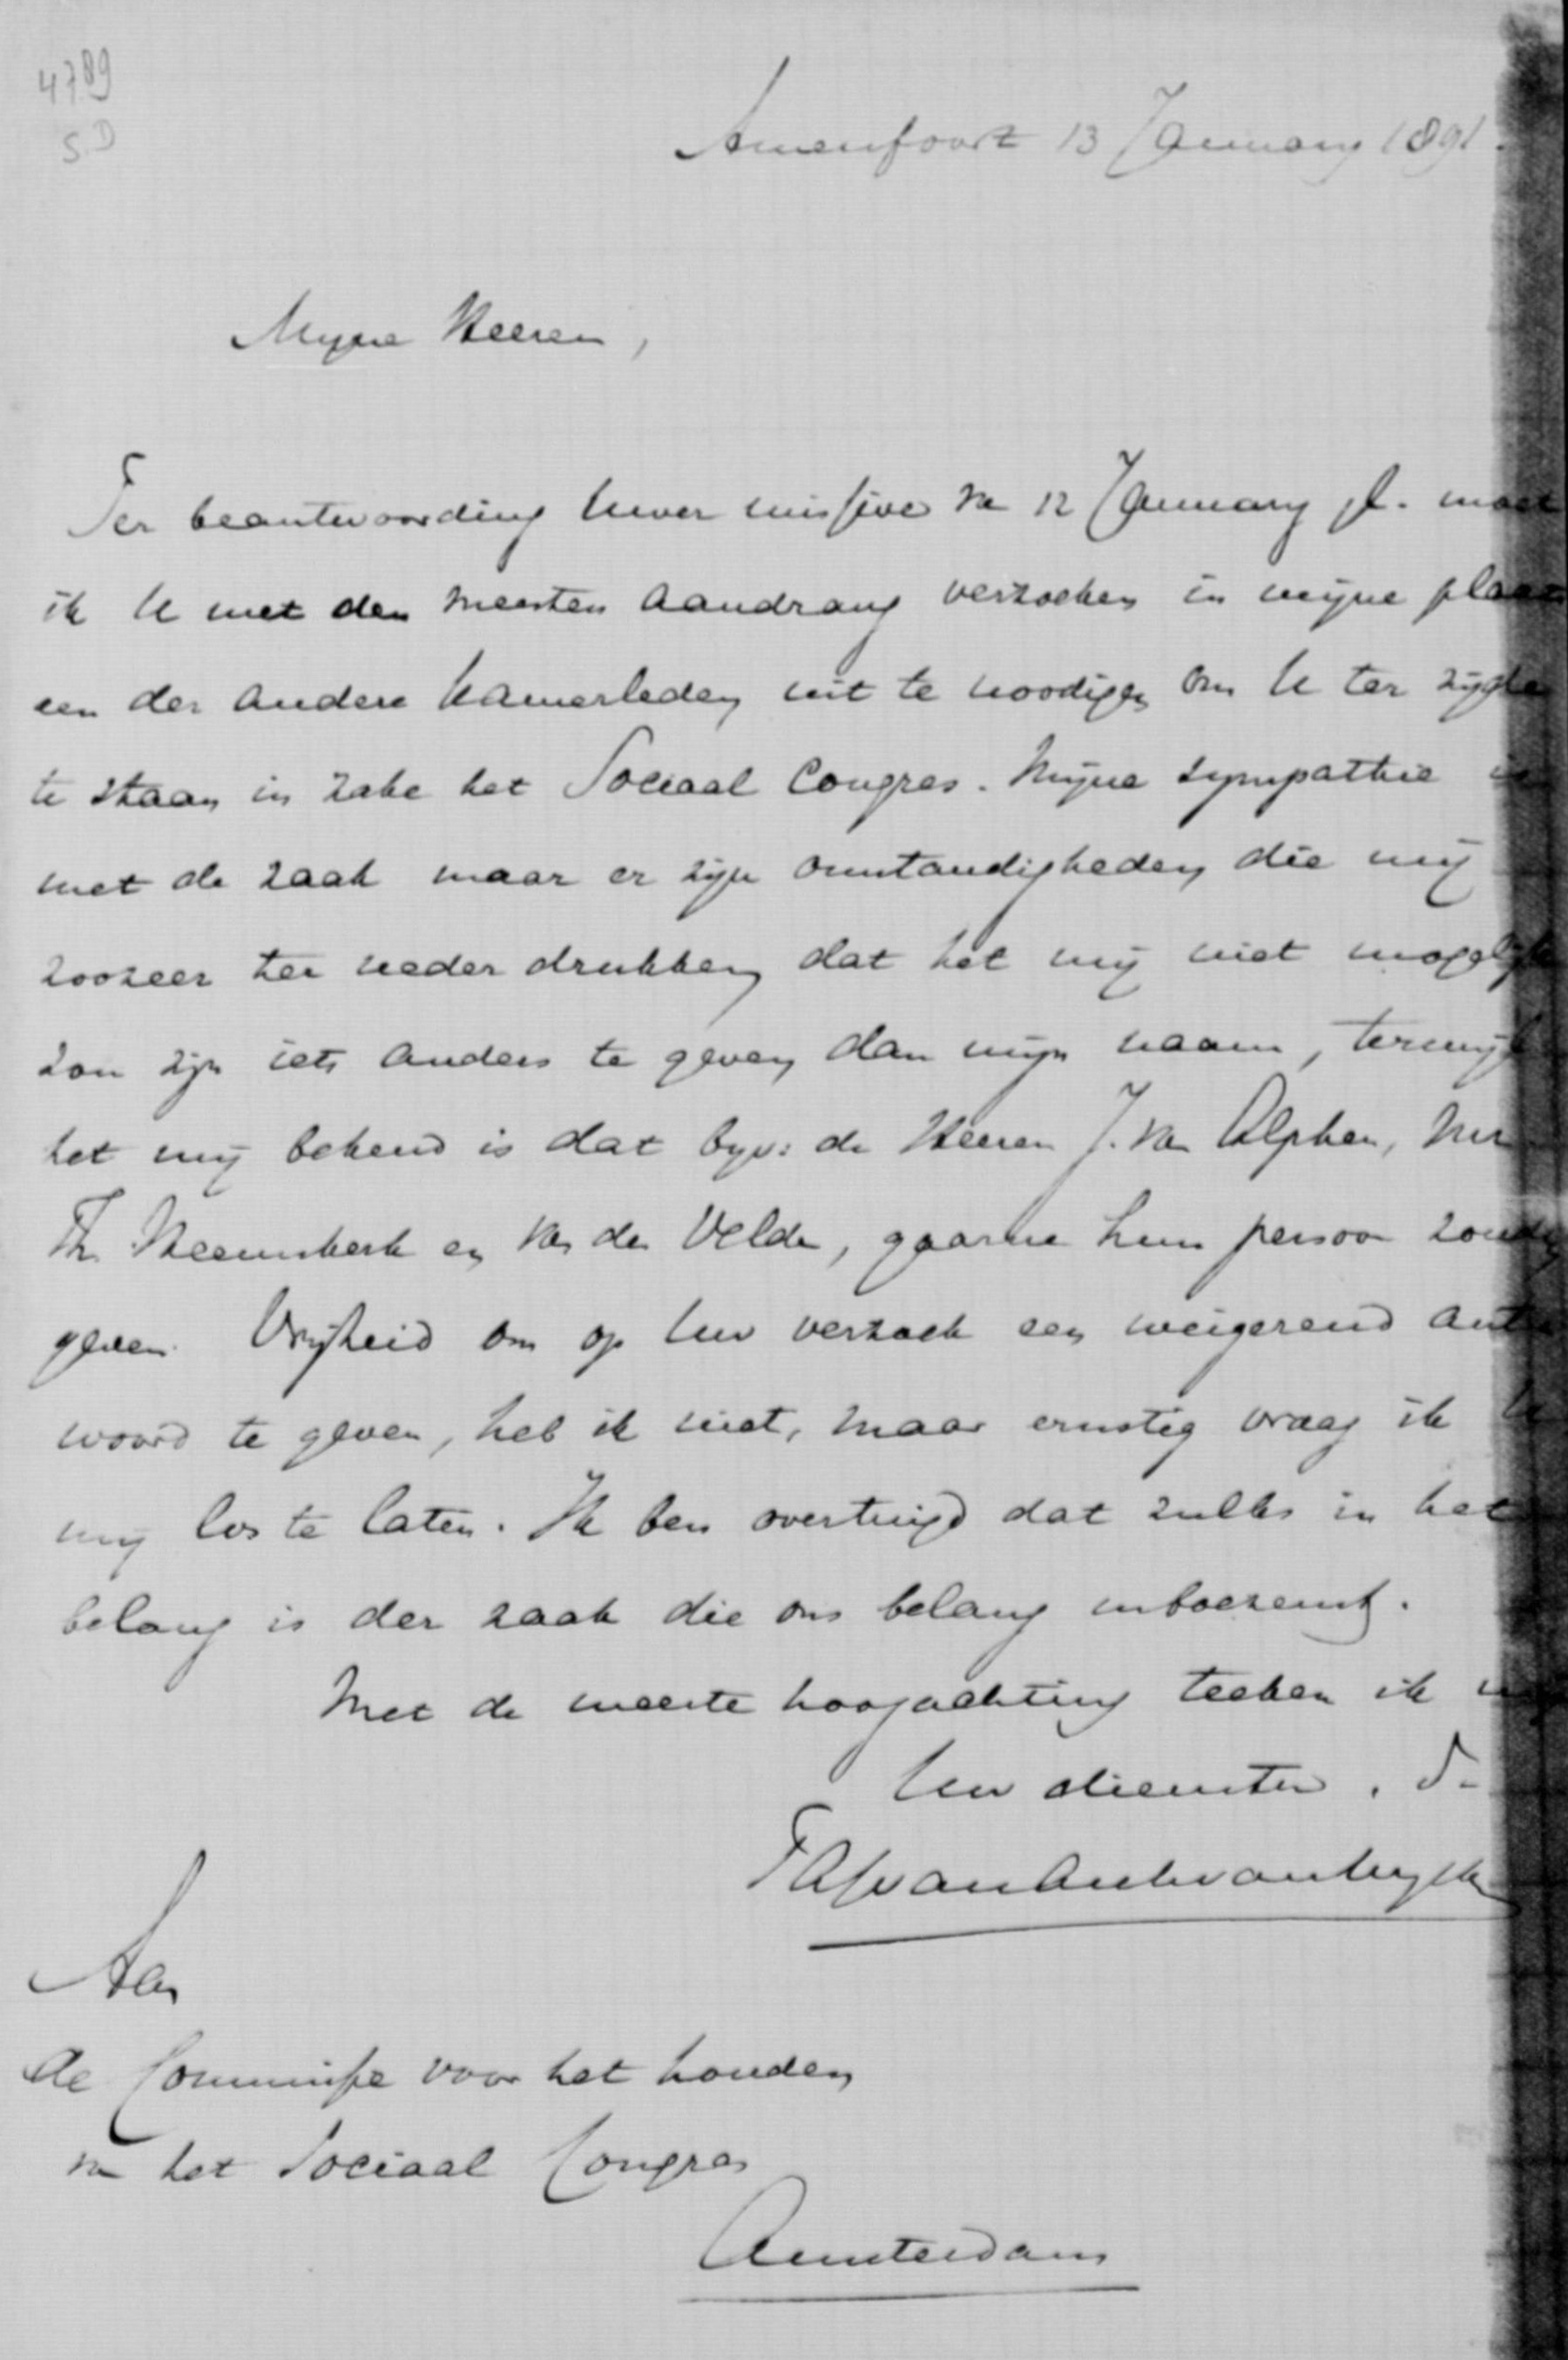 4789
S.D
Amersfoort 13 January 1891.
Myne Heeren,
Ter beantwoording Uwer missive van 12 January jl. moet
ik U met den meesten aandrang verzoeken in mijne plaats
een der andere Kamerleden uit te noodigen om U ter zyde
te staan in zake het Sociaal Congres. Mijne sympathie is
met de zaak maar er zijn omstandigheden die mij
zoozeer ter neder drukken dat het mij niet mogelijk
zou zijn iets anders te geven dan mijn naam, terwijl
het mij bekend is dat byv: de Heeren J. van Alphen, Mr
Th. Heemskerk en van der Velde, gaarne hun persoon zouden
geven. Vrijheid om op Uw verzoek een weigerend ant
woord te geven, heb ik niet, maar ernstig vraag ik U
mij los te laten. Ik ben overtuigd dat zulks in het
belang is der zaak die ons belang inboezemt.
Met de meeste hoogachting teeken ik
Uw dienstw. d.
Aan
de Commissie voor het houden
van het Sociaal Congres
Amsterdam